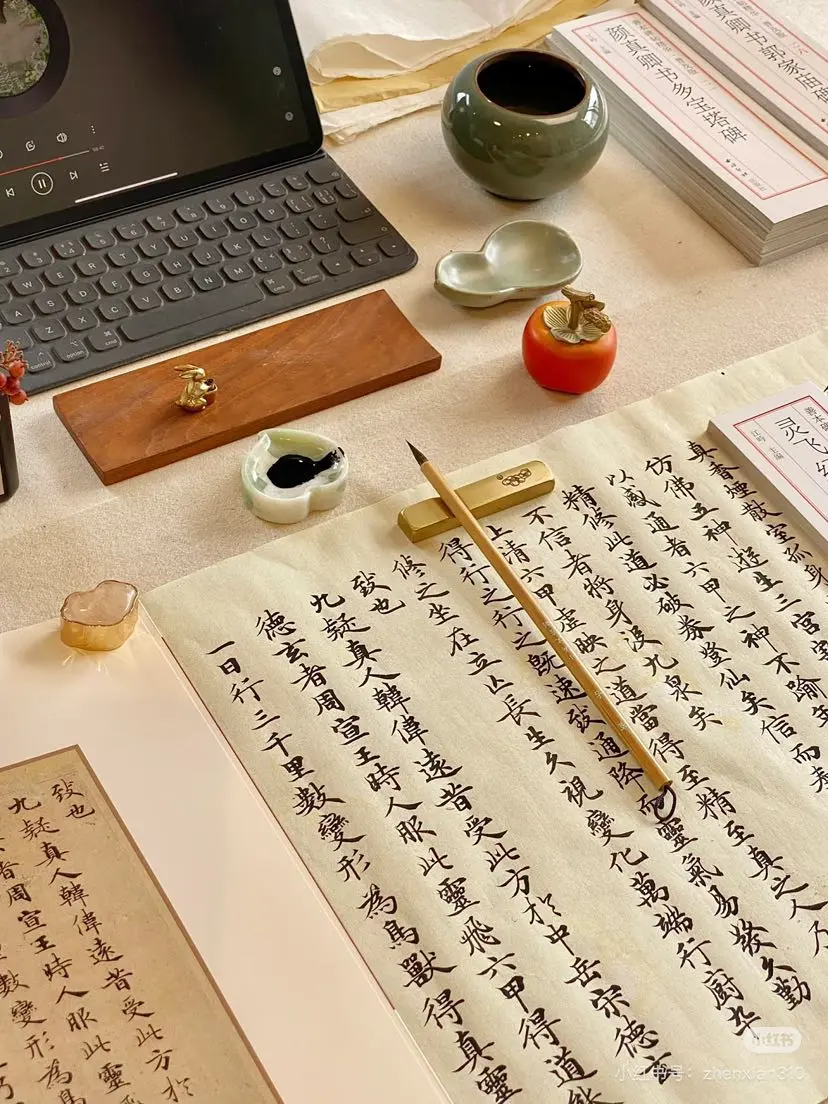 颜真卿书郭家庙碑
颜真卿书多宝塔碑
灵飞
真香煙散室孤身
仿佛五神遊生三宮
以感通者六甲之神不踰年
精修此道必破券登仙矣信而奉
不信者將身沒九泉矣
上清六甲虛映之道當得至精至真之人乃
得行之行之既速致通降而靈氣易發久勤
修之坐在立亡長生久視變化萬端行廚卒
致也
九疑真人韓偉遠昔受此方於中岳宗德玄
德玄者周宣王時人服此靈飛六甲得道能
一日行三千里數變形為鳥獸得真靈
致也
九疑真人韓偉遠昔受此方於
者周宣王時人服此靈
數變形為鳥
小红书
小红书号：zhenxian310